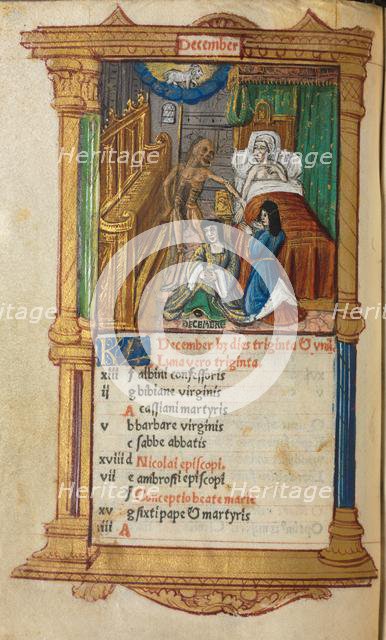 December
DECEMBRE
KL December hỹ dies triginta & vnũ
Luna vero triginta.
xiii f albini confessoris
ij g bibiane virginis
A cassiani martyris
v b barbare virginis
c sabbe abbatis
xviii d Nicolai episcopi.
vii e ambrosii episcopi
f Conceptio beate marie
xv g sixti pape & martyris
iiii A
Heritage
Heritage
Heritage
Heritage
Heritage
Heritage
Heritage
Heritage